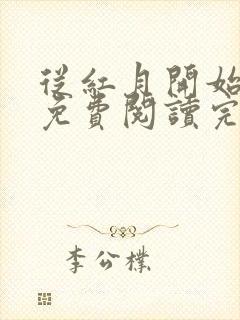 從紅月開始
免費閱讀完
李公樸